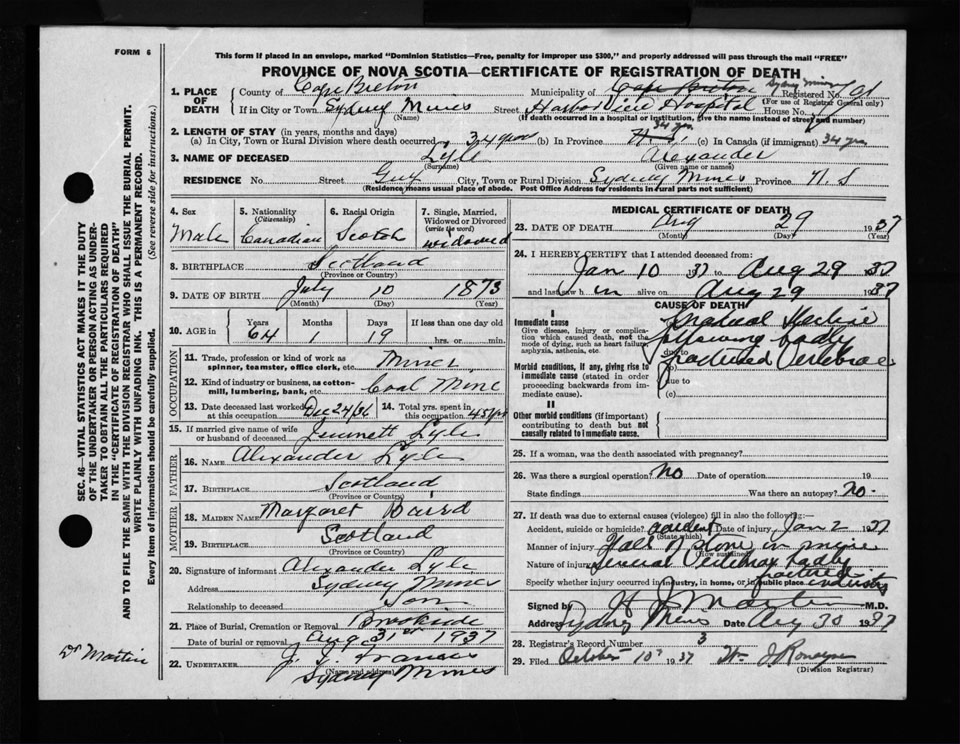 FORM 6
This form if placed in an envelope, marked "Dominion Statistics—Free, penalty for improper use $300," and properly addressed will pass through the mail "FREE"
PROVINCE OF NOVA SCOTIA—CERTIFICATE OF REGISTRATION OF DEATH
1. PLACE OF DEATH
County of Cape Breton Municipality of Cape Breton Sydney Mines Registered No. 91
(For use of Registrar General only)
If in City or Town Sydney Mines Street Harbor View Hospital House No.
(Name) (If death occurred in a hospital or institution, give the name instead of street and number)
2. LENGTH OF STAY (in years, months and days)
(a) In City, Town or Rural Division where death occurred 34 yrs (b) In Province 34 yrs (c) In Canada (if immigrant) 34 yrs
3. NAME OF DECEASED Lyle Alexander
(Surname) (Given name or names)
RESIDENCE No. Street Guy City, Town or Rural Division Sydney Mines Province N.S
(Residence means usual place of abode. Post Office Address for residents in rural parts not sufficient)
4. Sex Male
5. Nationality (Citizenship) Canadian
6. Racial Origin Scotch
7. Single, Married, Widowed or Divorced (write the word) widowed
8. BIRTHPLACE Scotland
(Province or Country)
9. DATE OF BIRTH July 10 1873
(Month) (Day) (Year)
10. AGE in Years 64 Months 1 Days 19 If less than one day old hrs. or min.
OCCUPATION
11. Trade, profession or kind of work as spinner, teamster, office clerk, etc. Miner
12. Kind of industry or business, as cotton-mill, lumbering, bank, etc. Coal Mine
13. Date deceased last worked at this occupation Dec 24/36 14. Total yrs. spent in this occupation 45 yrs
15. If married give name of wife or husband of deceased Jennett Lyle
FATHER
16. NAME Alexander Lyle
17. BIRTHPLACE Scotland
(Province or Country)
MOTHER
18. MAIDEN NAME Margaret Baird
19. BIRTHPLACE Scotland
(Province or Country)
20. Signature of informant Alexander Lyle
Address Sydney Mines
Relationship to deceased Son
21. Place of Burial, Cremation or Removal Brookside
Date of burial or removal Aug. 31st 1937
22. UNDERTAKER J. Francis
(Name and address) Sydney Mines
MEDICAL CERTIFICATE OF DEATH
23. DATE OF DEATH Aug 29 1937
(Month) (Day) (Year)
24. I HEREBY CERTIFY that I attended deceased from:
Jan 10 37 to Aug 29 1937
and last saw him alive on Aug 29 1937
CAUSE OF DEATH
I
Immediate cause
Give disease, injury or complication which caused death, not the mode of dying, such as heart failure, asphyxia, asthenia, etc.
Gradual decline following badly
due to
fractured Vertebrae
Morbid conditions, if any, giving rise to immediate cause (stated in order proceeding backwards from immediate cause)
(b)
due to
(c)
II
Other morbid conditions (if important) contributing to death but not causally related to immediate cause.
25. If a woman, was the death associated with pregnancy?
26. Was there a surgical operation? No Date of operation 19
State findings Was there an autopsy? No.
27. If death was due to external causes (violence) fill in also the following:
Accident, suicide or homicide? accident Date of injury Jan 2 1937
(State which)
Manner of injury Fall of stone in mine
(How sustained)
Nature of injury Several Vertebrae badly fractured
Specify whether injury occurred in industry, in home, or in public place industry
Signed by Martin M.D.
Address Sydney Mines Date Aug 30 1937
28. Registrar's Record Number 3
29. Filed October 10 1937 Wm J Ronayne
(Division Registrar)
SEC. 46—VITAL STATISTICS ACT MAKES IT THE DUTY
OF THE UNDERTAKER OR PERSON ACTING AS UNDER-
TAKER TO OBTAIN ALL THE PARTICULARS REQUIRED
IN THE "CERTIFICATE OF REGISTRATION OF DEATH"
AND TO FILE THE SAME WITH THE DIVISION REGISTRAR WHO SHALL ISSUE THE BURIAL PERMIT.
WRITE PLAINLY WITH UNFADING INK. THIS IS A PERMANENT RECORD.
Every item of information should be carefully supplied. (See reverse side for instructions.)
Dr Martin